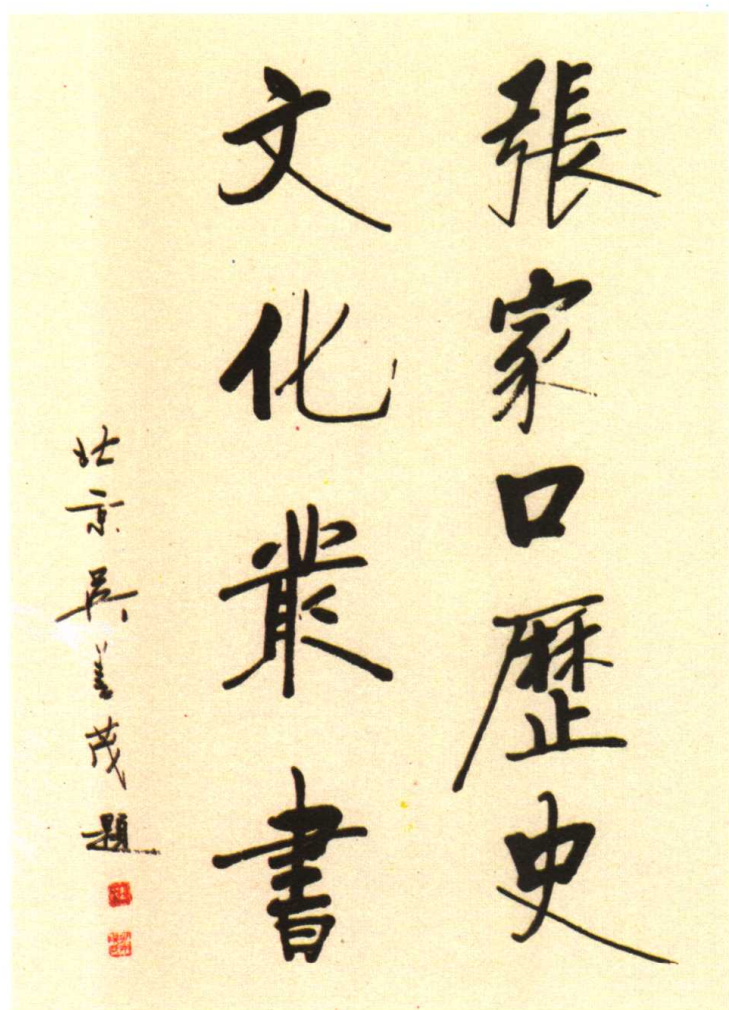 張家口歷史
文化叢書
北京吳善茂題